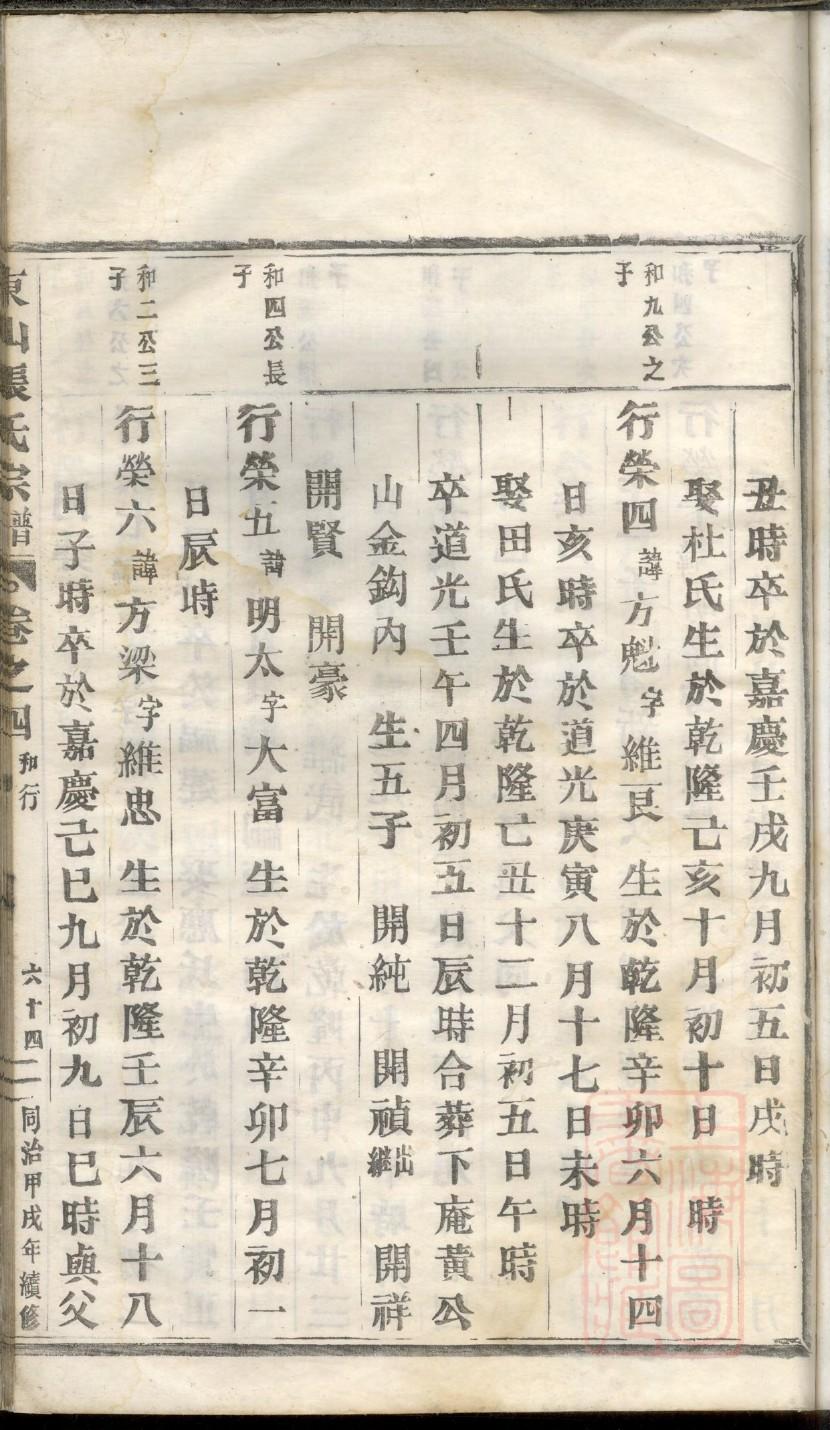 丑時卒於嘉慶壬戌九月初五日戌時
娶杜氏生於乾隆己亥十月初十日 時
和九公之子
行榮四諱方魁字維艮 生於乾隆辛卯六月十四
日亥時卒於道光庚寅八月十七日未時
娶田氏生於乾隆己丑十二月初五日午時
卒道光壬午四月初五日辰時合葬下庵黃公
山金鈎內 生五子 開純 開禎出繼 開祥
開賢 開豪
和四公長子
行榮五諱明太字大富 生於乾隆辛卯七月初一
日辰時
和二公三子
行榮六諱方梁字維忠 生於乾隆壬辰六月十八
日子時卒於嘉慶己巳九月初九日巳時與父
東山張氏宗譜 卷之四 和行 六十四 同治甲戌年續修